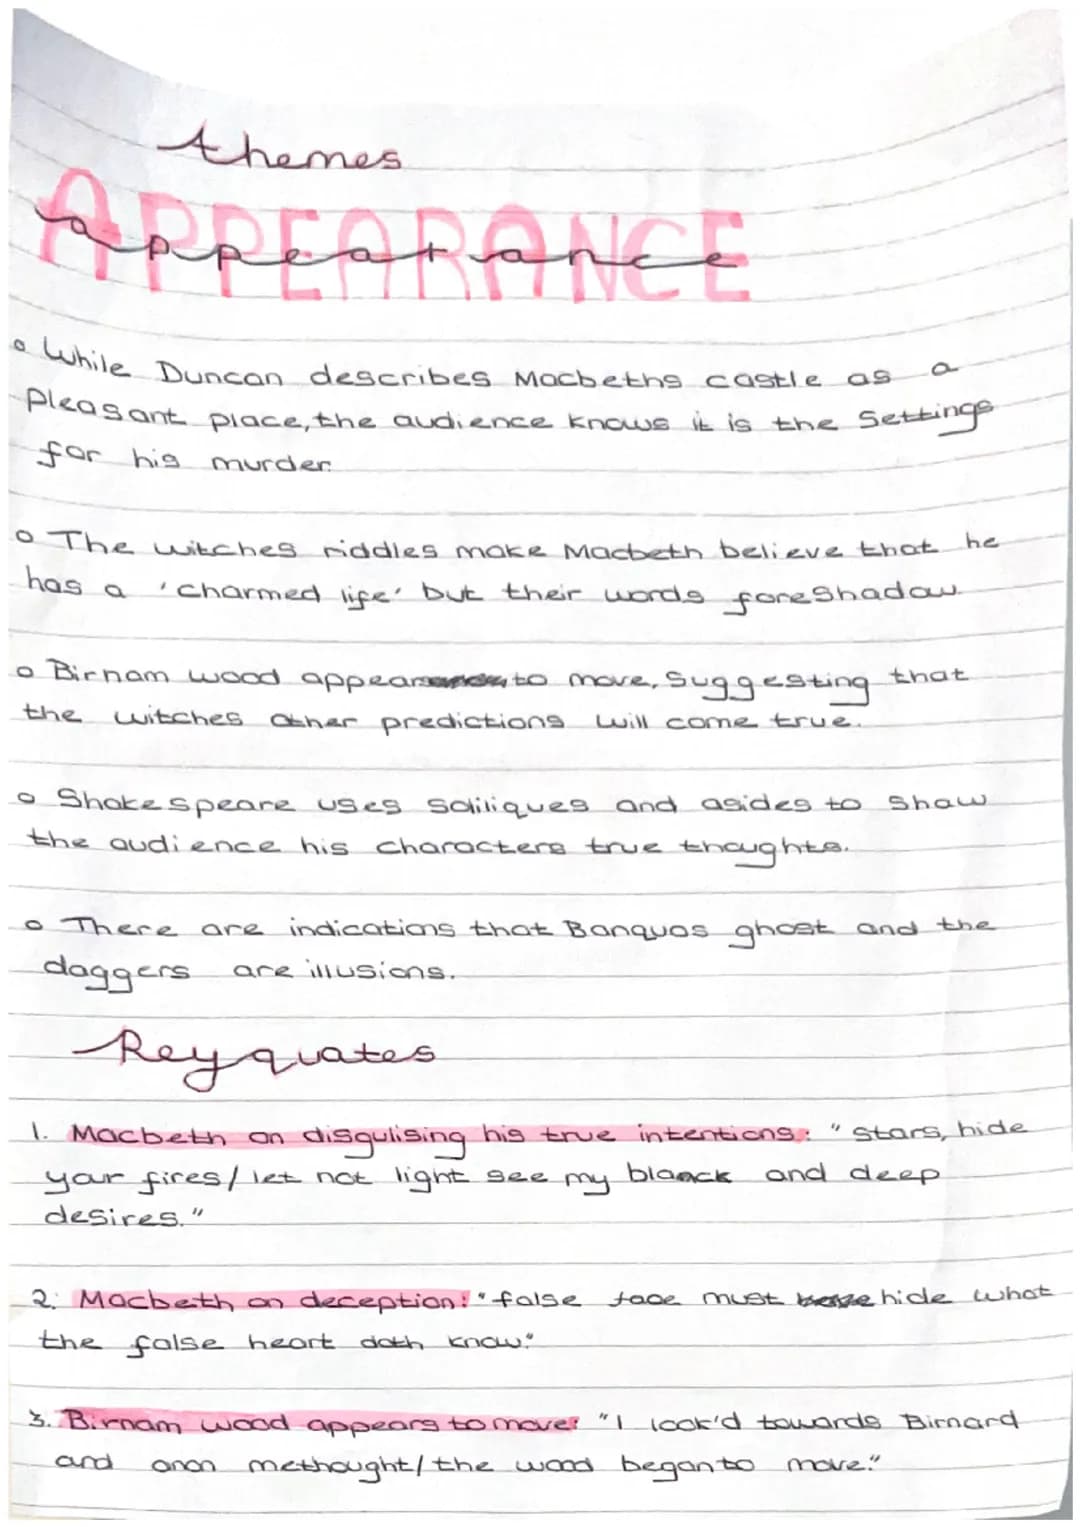 themes
APPEARANCE
appearance
While Duncan describes Macbeths castle as a
pleasant place, the audience knows it is the Settings
for his murder.
The witches riddles make Macbeth believe that he
has a 'charmed life' but their words foreshadow.
Birnam wood appears to move, suggesting that
the witches other predictions will come true.
Shakespeare uses soliliques and asides to show
the audience his characters true thoughts.
There are indications that Banquos ghost and the
daggers are illusions.
Key quotes
1. Macbeth on disgulising his true intentions: "Stars, hide
your fires/ let not light see my blanck and deep
desires."
2. Macbeth on deception: "false face must hide what
the false heart doth know."
3. Birnam wood appears to move: "I look'd towards Birnard
and anon methought/ the wood began to move."